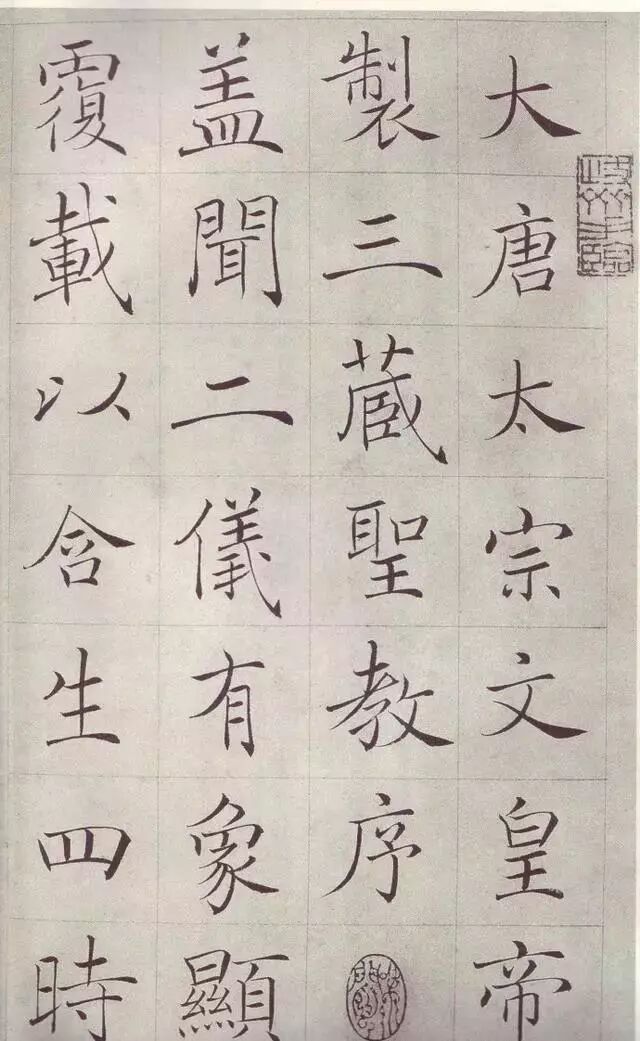 大唐太宗文皇帝
製三藏聖教序
盖聞二儀有象顯
覆載以含生四時